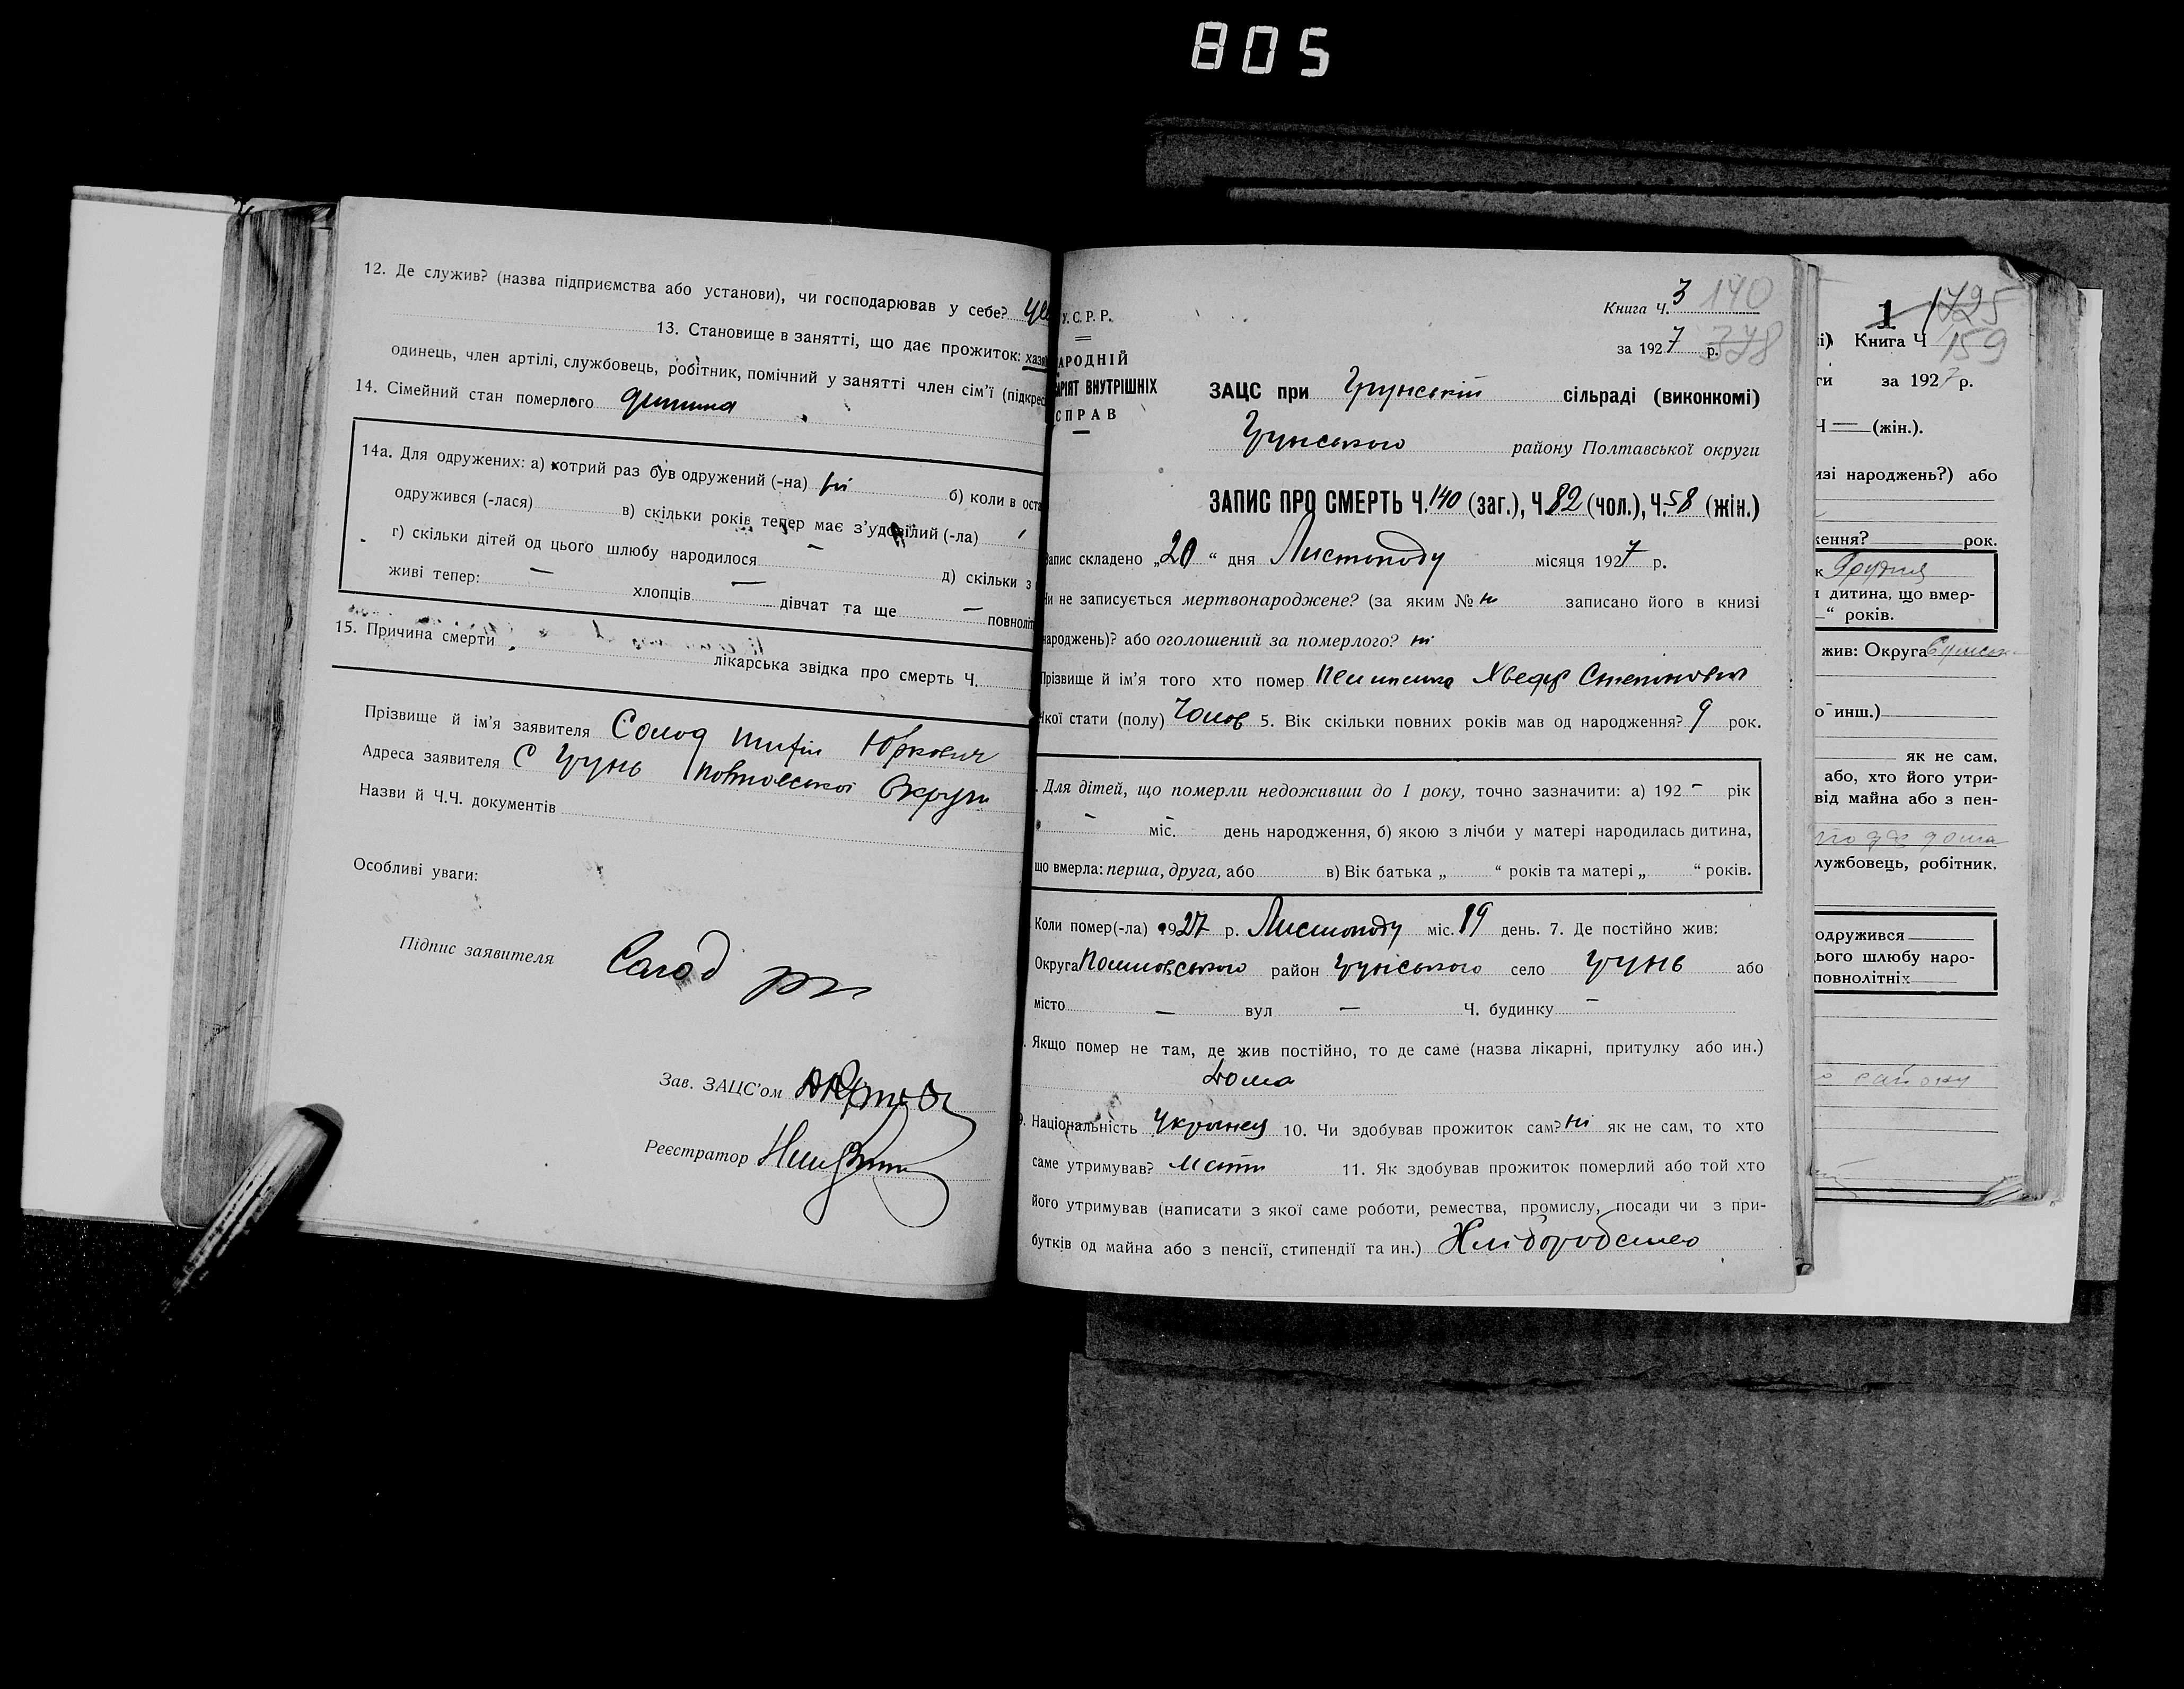 805
12. Де служив? (назва підприємства або установи), чи господарював у себе?
13. Становище в занятті, що дає прожиток: хазя
одинець, член артілі, службовець, робітник, помічний у занятті член сім'ї (підкрес
14. Сімейний стан померлого дитина
14а. Для одружених: а) котрий раз був одружений (-на) ні б) коли в оста
одружився (-лася) в) скільки років тепер має з'удовілий (-ла)
г) скільки дітей од цього шлюбу народилося — д) скільки з
живі тепер: — хлопців — дівчат та ще — повноліт
15. Причина смерти
лікарська звідка про смерть Ч.
Прізвище й ім'я заявителя Солод Юркович
Адреса заявителя С Грунь Полтавської Округи
Назви й Ч.Ч. документів
Особливі уваги:
Підпис заявителя Солод
Зав. ЗАЦС'ом
Реєстратор
У.С.Р.Р.
АРОДНІЙ
АРІЯТ ВНУТРІШНІХ
СПРАВ
Книга Ч. 3 140
за 1927 р. 378
ЗАЦС при Грунській сільраді (виконкомі)
Грунського району Полтавської округи
ЗАПИС ПРО СМЕРТЬ Ч. 140 (заг.), Ч. 82 (чол.), Ч. 58 (жін.)
Запис складено „20“ дня Листопаду місяця 1927 р.
Чи не записується мертвонароджене? (за яким № ні записано його в книзі
народжень)? або оголошений за померлого? ні
Прізвище й ім'я того хто помер Хведір Степанович
Якої стати (полу) Чолов 5. Вік скільки повних років мав од народження? 9 рок.
. Для дітей, що померли недоживши до 1 року, точно зазначити: а) 192 – рік
– міс. – день народження, б) якою з лічби у матері народилась дитина,
що вмерла: перша, друга, або в) Вік батька „ “ років та матері „ “ років.
Коли помер(-ла) 1927 р. Листопаду міс. 19 день. 7. Де постійно жив:
Округа Полтавського район Грунського село Грунь або
місто — вул — Ч. будинку –
. Якщо помер не там, де жив постійно, то де саме (назва лікарні, притулку або ин.)
Дома
9. Національність Українец 10. Чи здобував прожиток сам? ні як не сам, то хто
саме утримував? Мати 11. Як здобував прожиток померлий або той хто
його утримував (написати з якої саме роботи, ремества, промислу, посади чи з при-
бутків од майна або з пенсії, стипендії та ин.) Хліборобство
1 1725
і) Книга Ч 159
ги за 1927 р.
Ч — (жін.).
изі народжень?) або
ження? рок.
к Грудня
я дитина, що вмер-
“ років.
жив: Округа Сумськ
о инш.)
як не сам,
або, хто його утри-
від майна або з пен-
дома
лужбовець, робітник,
одружився
ього шлюбу наро-
повнолітніх
району